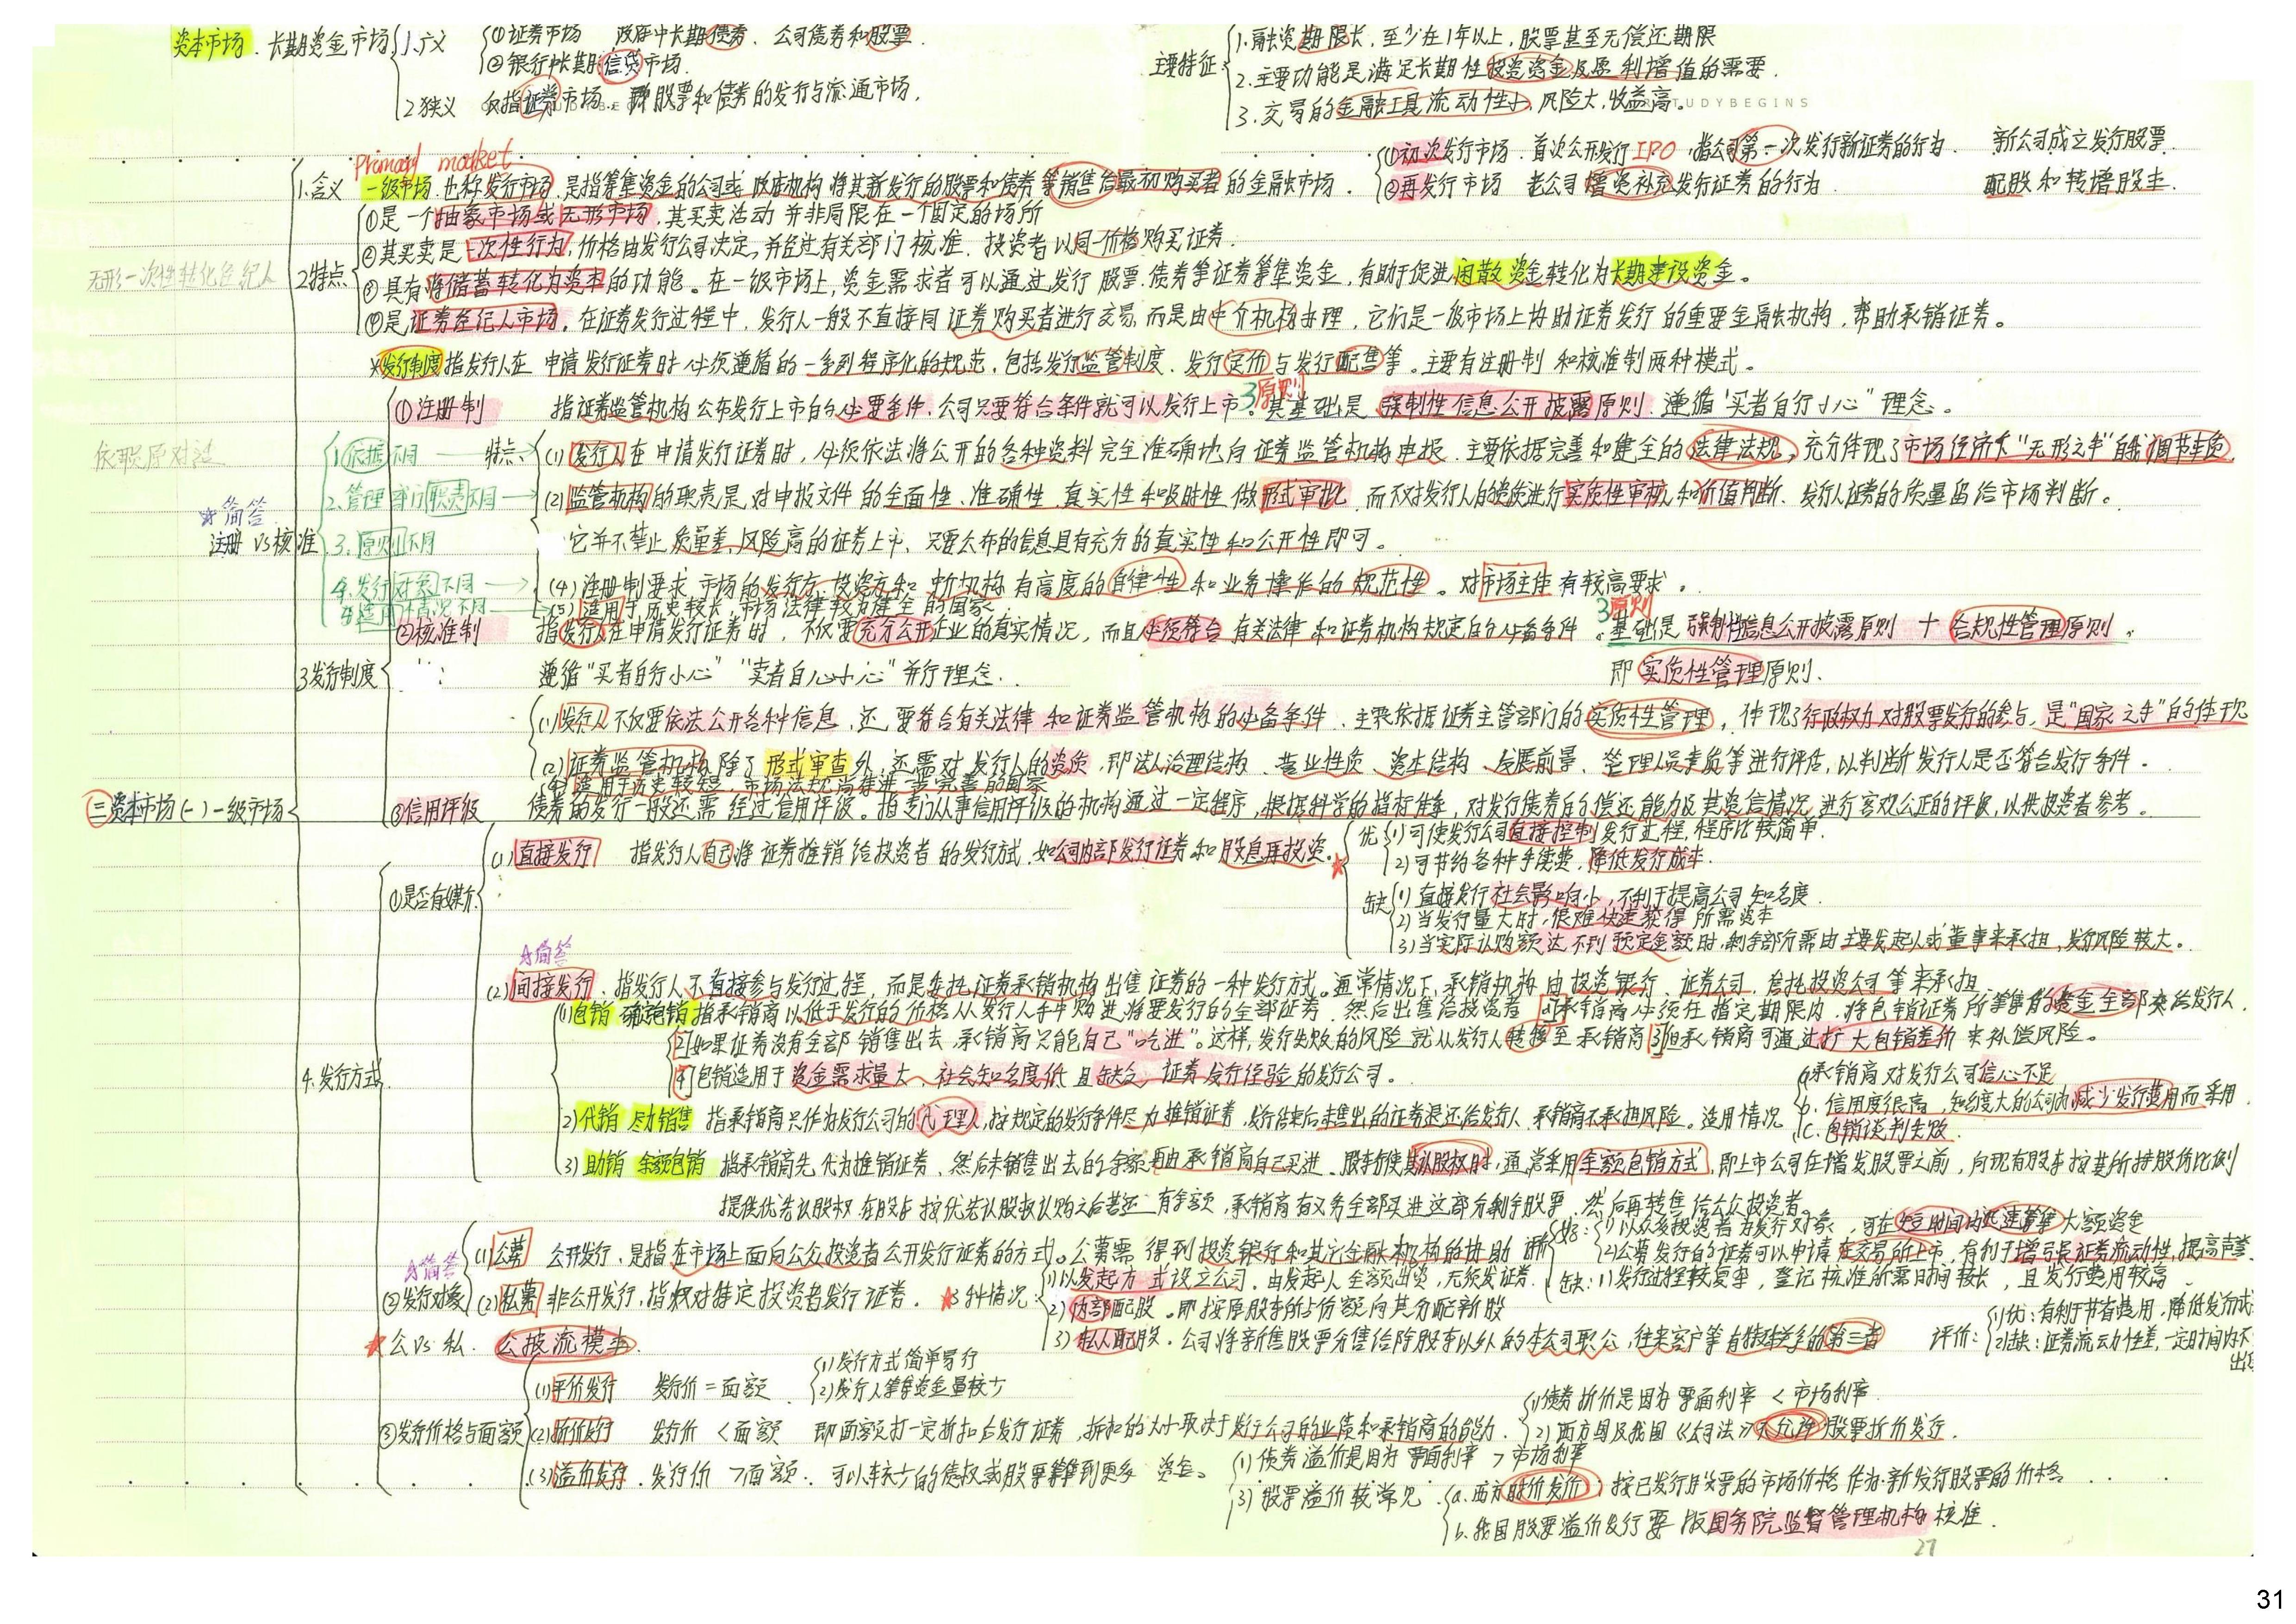 资本市场. 长期资金市场 1.广义 ①证券市场 政府中长期债券、公司债券和股票.
②银行中长期信贷市场.
2狭义 仅指证券市场. 即股票和债券的发行与流通市场.
主要特征 1.融资期限长，至少在1年以上，股票甚至无偿还期限
2.主要功能是满足长期性投资资金及原利增值的需要.
3.交易的金融工具流动性小，风险大，收益高。
STUDYBEGINS
Primary market
1.含义 一级市场.也称发行市场.是指筹集资金的公司或政府机构将其新发行的股票和债券等销售给最初购买者的金融市场.
①初次发行市场. 首次公开发行IPO .指公司第一次发行新证券的行为. 新公司成立发行股票.
②再发行市场 老公司增资补充发行证券的行为 配股和转增股本.
无形一次性转化经纪人
2.特点 ①是一个抽象市场或无形市场，其买卖活动并非局限在一个固定的场所
②其买卖是一次性行为，价格由发行公司决定，并经过有关部门核准. 投资者以同一价格购买证券.
③具有将储蓄转化为资本的功能。在一级市场上，资金需求者可以通过发行股票.债券等证券筹集资金，有助于促进闲散资金转化为长期建设资金。
④是证券经纪人市场。在证券发行过程中，发行人一般不直接同证券购买者进行交易，而是由中介机构办理，它们是一级市场上协助证券发行的重要金融机构，帮助承销证券。
※发行制度 指发行人在申请发行证券时必须遵循的一系列程序化的规范，包括发行监管制度、发行定价与发行配售等。主要有注册制和核准制两种模式。
3原则
①注册制 指证券监管机构公布发行上市的必要条件.公司只要符合条件就可以发行上市。其基础是强制性信息公开披露原则.遵循“买者自行小心”理念。
依职原对适
1.依据不同 特点: (1)发行人在申请发行证券时，必须依法将公开的各种资料完全准确地向证券监管机构申报.主要依据完善和建全的法律法规，充分体现了市场经济下“无形之手”自我调节本质
☆简答
注册 vs 核准
2.管理部门职责不同 (2)监管机构的职责是，对申报文件的全面性、准确性、真实性和及时性做形式审批，而不对发行人的资质进行实质性审核和价值判断. 发行人证券的质量留给市场判断。
3.原则不同 它并不禁止质量差、风险高的证券上市，只要公布的信息具有充分的真实性和公开性即可。
4.发行对象不同 (4)注册制要求市场的发行方、投资方和中介机构有高度的自律性和业务操作的规范性。对市场主体有较高要求。
5.适用情况不同 (5)适用于历史较长，市场法律较为健全的国家.
3原则
②核准制 指发行人在申请发行证券时，不仅要充分公开企业的真实情况，而且必须符合有关法律和证券机构规定的必备条件。基础是强制性信息公开披露原则 + 合规性管理原则.
3发行制度 遵循“买者自行小心”“卖者自心小心”并行理念. 即实质性管理原则.
(1)发行人不仅要依法公开各种信息，还要符合有关法律和证券监管机构的必备条件. 主要依据证券主管部门的实质性管理，体现了行政权力对股票发行的参与，是“国家之手”的体现
(2)证券监管机构除了形式审查外，还需对发行人的资质，即法人治理结构、营业性质、资本结构、发展前景、管理人员素质等进行评估，以判断发行人是否符合发行条件.
(4)适用于历史较短，市场法规尚待进一步完善的国家
㊂资本市场(一)一级市场
③信用评级 债券的发行一般还需经过信用评级。指专门从事信用评级的机构通过一定程序，根据科学的指标体系，对发行债券的偿还能力及其资信情况进行客观公正的评级，以供投资者参考。
①是否有媒介 (1)直接发行 指发行人自己将证券推销给投资者的发行方式.如公司内部发行证券和股息再投资.
优 1)可使发行公司直接控制发行过程，程序比较简单.
2)可节约各种手续费，降低发行成本.
缺 1)直接发行社会影响小，不利于提高公司知名度
2)当发行量大时，很难快速获得所需资本
3)当实际认购额达不到预定金额时，剩余部分需由主要发起人或董事来承担，发行风险较大。
☆简答
(2)间接发行.指发行人不直接参与发行过程，而是委托证券承销机构出售证券的一种发行方式。通常情况下，承销机构由投资银行、证券公司、信托投资公司等来承担
1)包销 确定包销 指承销商以低于发行的价格从发行人手中购进将要发行的全部证券，然后出售给投资者 承销商必须在指定期限内，将包销证券所筹集的资金全部交给发行人.
[2]如果证券没有全部销售出去，承销商只能自己“吃进”。这样，发行失败的风险就从发行人转移至承销商 [3]但承销商可通过扩大包销差价来补偿风险。
[4]包销适用于资金需求量大、社会知名度低且缺乏证券发行经验的发行公司。
4.发行方式
2)代销 尽力销售 指承销商只作为发行公司的代理人，按规定的发行条件尽力推销证券，发行结束后未售出的证券退还给发行人.承销商不承担风险。适用情况
a承销商对发行公司信心不足
b.信用度很高，知名度大的公司为减少发行费用而采用.
c.包销谈判失败.
3)助销 余额包销 指承销商先代为推销证券，然后未销售出去的余额再由承销商自己买进.股东行使其认股权时，通常采用余额包销方式，即上市公司在增发股票之前，向现有股东按其所持股份比例
提供优先认股权.在股东按优先认股权认购之后若还有余额，承销商有义务全部买进这部分剩余股票，然后再转售给公众投资者
☆简答
②发行对象 (1)公募 公开发行.是指在市场上面向公众投资者公开发行证券的方式。公募需得到投资银行和其它金融机构的协助
评价 好: 1)以众多投资者为发行对象，可在短时间内迅速筹集大额资金
2)公募发行的证券可以申请在交易所上市，有利于增强证券流动性，提高声誉.
缺: 1)发行过程较复杂，登记核准所需时间较长，且发行费用较高
(2)私募 非公开发行，指只对特定投资者发行证券. ★3种情况:
1)以发起方式设立公司.由发起人全额出资，无须发证券.
2)内部配股。即按原股东所占份额向其分配新股
3)私人配股.公司将新售股票分售给除股东以外的本公司职公、往来客户等有特殊关系的第三者
评价: 1)优:有利于节省费用，降低发行成
2)缺:证券流动性差，一定时间内不
★公vs私. 公披流模率.
③发行价格与面额 (1)平价发行 发行价=面额 (1)发行方式简单易行
(2)发行人筹集资金量较少
(2)折价发行 发行价<面额 即面额打一定折扣后发行证券，折扣的大小取决于发行公司的业绩和承销商的能力.
1)债券折价是因为票面利率<市场利率.
2)西方国及我国《公司法》不允许股票折价发行.
(3)溢价发行. 发行价>面额: 可以较少的债权或股票筹集到更多资金。
(1)债券溢价是因为票面利率>市场利率
3)股票溢价较常见 a.西方时价发价:按已发行股票的市场价格作为新发行股票的价格
b.我国股票溢价发行要报国务院监督管理机构核准.
27
31